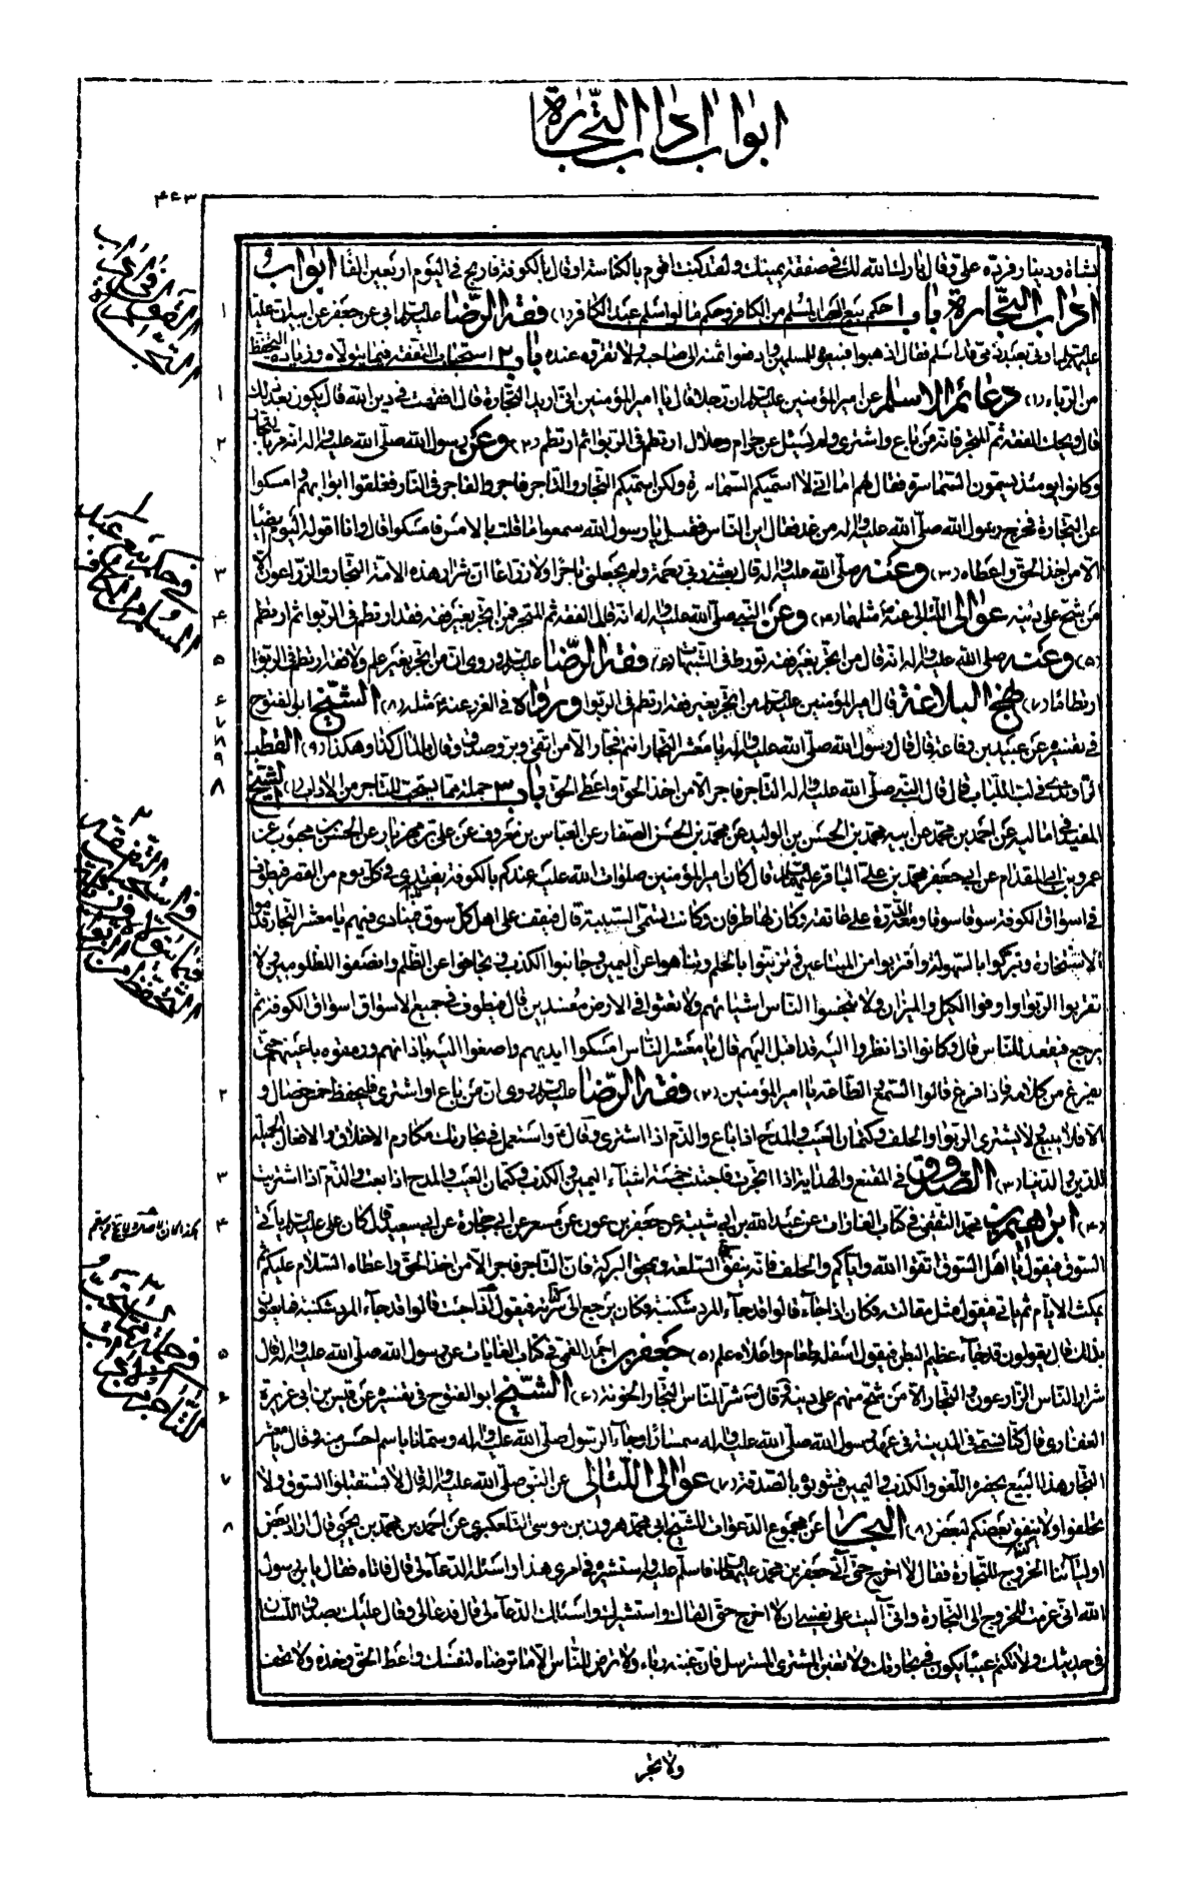 ابواب اداب التجارة
۴۶۳
بشاة ودينار فردّه علىّ وقال بارك الله لك فى صفقة يمينك ولقد كنت اقوم بالكناسة او قال بالكوفة فاربح فى اليوم اربعين الفا ابواب
اداب التجارة باب ١ حكم بيع العبد المسلم من الكافر وحكم ما لو اسلم عبد الكافر (١) فقه الرضا عليه السلم ابى عن جعفر عن ابيه ان عليا
عليه السلم اوتى بعبد ذمى قد اسلم فقال اذهبوا فبيعوه للمسلمين وادفعوا ثمنه الى صاحبه ولا تقروه عنده باب ٢ استحباب التفقه فيما يتولاه وزيادة التحفظ
من الرباء (١) دعائم الاسلام عن امير المؤمنين عليه السلم ان رجلا قال يا امير المؤمنين انى اريد التجارة قال افقهت فى دين الله قال يكون بعد ذلك
قال ويحك الفقه ثم المتجر فانه من باع واشترى ولم يسئل عن حرام وحلال ارتطم فى الربوا ثم ارتطم (٢) وعن رسول الله صلى الله عليه واله انه مر بالتجار
وكانوا يومئذ يسمون السماسرة فقال لهم اما انى لا اسميكم السماسرة ولكن اسميكم التجار والتاجر فاجر والفاجر فى النار فغلقوا ابوابهم وامسكوا
عن التجارة فخرج رسول الله صلى الله عليه واله من غد فقال اين الناس فقيل يا رسول الله سمعوا ما قلت بالامس فامسكوا قال وانا اقوله اليوم ايضا
الا من اخذ الحق واعطاه (٣) وعنه صلى الله عليه واله قال بعثنى ربى رحمة ولم يجعلنى تاجرا ولا زراعا ان شرار هذه الامة التجار والزراعون الا
من شح على دينه عوالى اللئالى عنه مثلها (٤) وعن النبى صلى الله عليه واله انه قال الفقه ثم المتجر فمن اتجر بغير فقه فقد ارتطم فى الربوا ثم ارتطم
(٥) وعنه صلى الله عليه واله انه قال من اتجر بغير فقه تورط فى الشبهات (٦) فقه الرضا عليه السلم وروى ان من اتجر بغير علم ولا فقه ارتطم فى الربوا
ارتطاما (٧) نهج البلاغة قال امير المؤمنين عليه السلم من اتجر بغير فقه ارتطم فى الربوا ورواه فى الغرر عنه مثله (٨) الشيخ ابو الفتوح
فى تفسيره عن عبيد بن رفاعة قال قال رسول الله صلى الله عليه واله يا معشر التجار انتم فجار الا من اتقى وبر وصدق وقال بالمال كذا وهكذا (٩) القطب
الراوندى فى لب اللباب قال قال النبى صلى الله عليه واله التاجر فاجر الا من اخذ الحق واعطى الحق باب ٣ جملة مما يستحب للتاجر من الاداب (١) الشيخ
المفيد فى اماليه عن احمد بن محمد عن ابيه محمد بن الحسن بن الوليد عن محمد بن الحسن الصفار عن العباس بن معروف عن على بن مهزيار عن الحسن بن محبوب عن
عمرو بن ابى المقدام عن ابى جعفر محمد بن على الباقر عليهما السلم قال كان امير المؤمنين صلوات الله عليه عندكم بالكوفة يغتدى فى كل يوم من القصر فيطوف
فى اسواق الكوفة سوقا سوقا ومعه الدرة على عاتقه وكان لها طرفان وكانت تسمى السبيبة قال فيقف على اهل كل سوق فينادى فيهم يا معشر التجار قدموا
الاستخارة وتبركوا بالسهولة واقتربوا من المبتاعين وتزينوا بالحلم وتناهوا عن اليمين وجانبوا الكذب وتجافوا عن الظلم وانصفوا المظلومين ولا
تقربوا الربوا واوفوا الكيل والميزان ولا تبخسوا الناس اشيائهم ولا تعثوا فى الارض مفسدين قال فيطوف فى جميع الاسواق اسواق الكوفة ثم
يرجع فيقعد للناس قال وكانوا اذا نظروا اليه قد اقبل اليهم قال يا معشر الناس امسكوا ايديهم واصغوا اليه باذانهم ورمقوه باعينهم حتى
يفرغ من كلامه فاذا فرغ قالوا السمع والطاعة يا امير المؤمنين (٢) فقه الرضا عليه السلم روى ان من باع او اشترى فليحفظ خمس خصال و
الا فلا يبيع ولا يشترى الربوا والحلف وكتمان العيب والمدح اذا باع والذم اذا اشترى وقال واستعمل فى تجارتك مكارم الاخلاق والافعال الجميلة
للدين والدنيا (٣) الصدوق فى المقنع والهداية اذا اتجرت فاجتنب خمسة اشياء اليمين والكذب وكتمان العيب والمدح اذا بعت والذم اذا اشتريت
(٤) ابراهيم بن محمد الثقفى فى كتاب الغارات عن عبد الله بن ابى شيبة عن جعفر بن عون عن مسعر عن ابى حجادة عن ابى سعيد قال كان على عليه السلم ياتى
السوق فيقول يا اهل السوق اتقوا الله واياكم والحلف فانه ينفق السلعة ويمحق البركة فان التاجر فاجر الا من اخذ الحق واعطاه السلام عليكم ثم
يمكث الايام ثم ياتى فيقول مثل مقالته فكان اذا جاء قالوا قد جاء المرد شكنبه فكان يرجع الى سرته فيقول اذا جئت قالوا قد جاء المرد شكنبه فما يعنون
بذلك قال يقولون قد جاء عظيم البطن فيقول اسفله طعام واعلاه علم (٥) جعفر بن احمد القمى فى كتاب الغايات عن رسول الله صلى الله عليه واله قال
شرار الناس الزارعون والتجار الا من شح منهم على دينه وقال شر الناس التجار الخونة (٦) الشيخ ابو الفتوح فى تفسيره عن قيس بن ابى غريزة
الغفارى قال كنا نسمى فى المدينة فى عهد رسول الله صلى الله عليه واله سمسارا وجاء الرسول صلى الله عليه واله وسمانا باسم احسن منه وقال يا معشر
التجار هذا البيع يحضره اللغو والكذب واليمين فشوبوه بالصدقة (٧) عوالى اللئالى عن النبى صلى الله عليه واله قال لا تستقبلوا السوق ولا
تحلفوا ولا ينفق بعضكم لبعض (٨) البحار عن مجموع الدعوات للشيخ ابى محمد هرون بن موسى التلعكبرى عن احمد بن محمد بن يحيى قال اراد بعض
اوليائنا الخروج للتجارة فقال لا اخرج حتى اتى جعفر بن محمد عليهما السلم فاسلم عليه واستشيره فى امرى هذا واسئله الدعاء لى قال فاتاه فقال يا بن رسول
الله انى عزمت للخروج الى التجارة وانى آليت على نفسى ان لا اخرج حتى القاك واستشيرك واسئلك الدعاء لى قال فدعا لى وقال عليك بصدق اللسان
فى حديثك ولا تكتم عيبا يكون فى تجارتك ولا تغبن المشترى المسترسل فان غبنه رباء ولا ترض للناس الا ما ترضاه لنفسك واعط الحق وخذه ولا تخف
ولا تجر